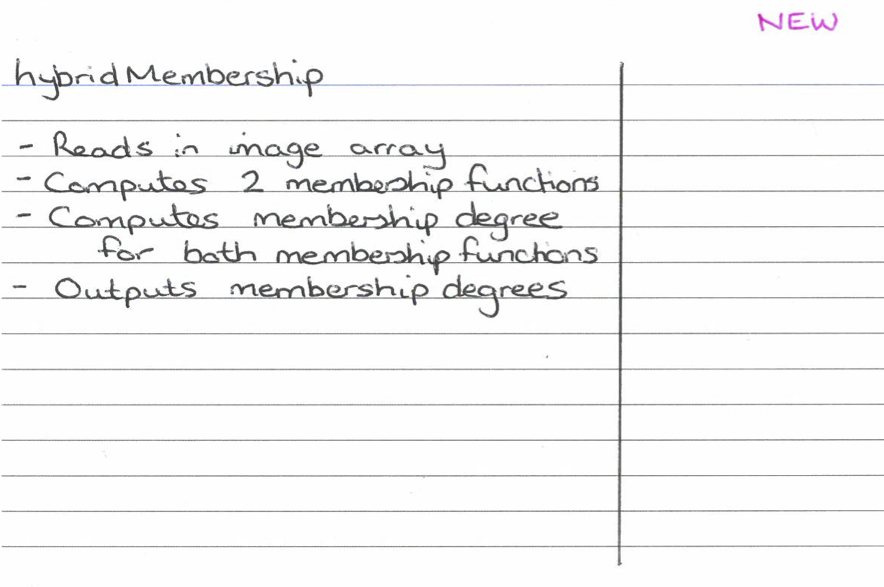 NEW
hybridMembership
- Reads in image array
- Computes 2 membership functions
- Computes membership degree
for both membership functions
- Outputs membership degrees